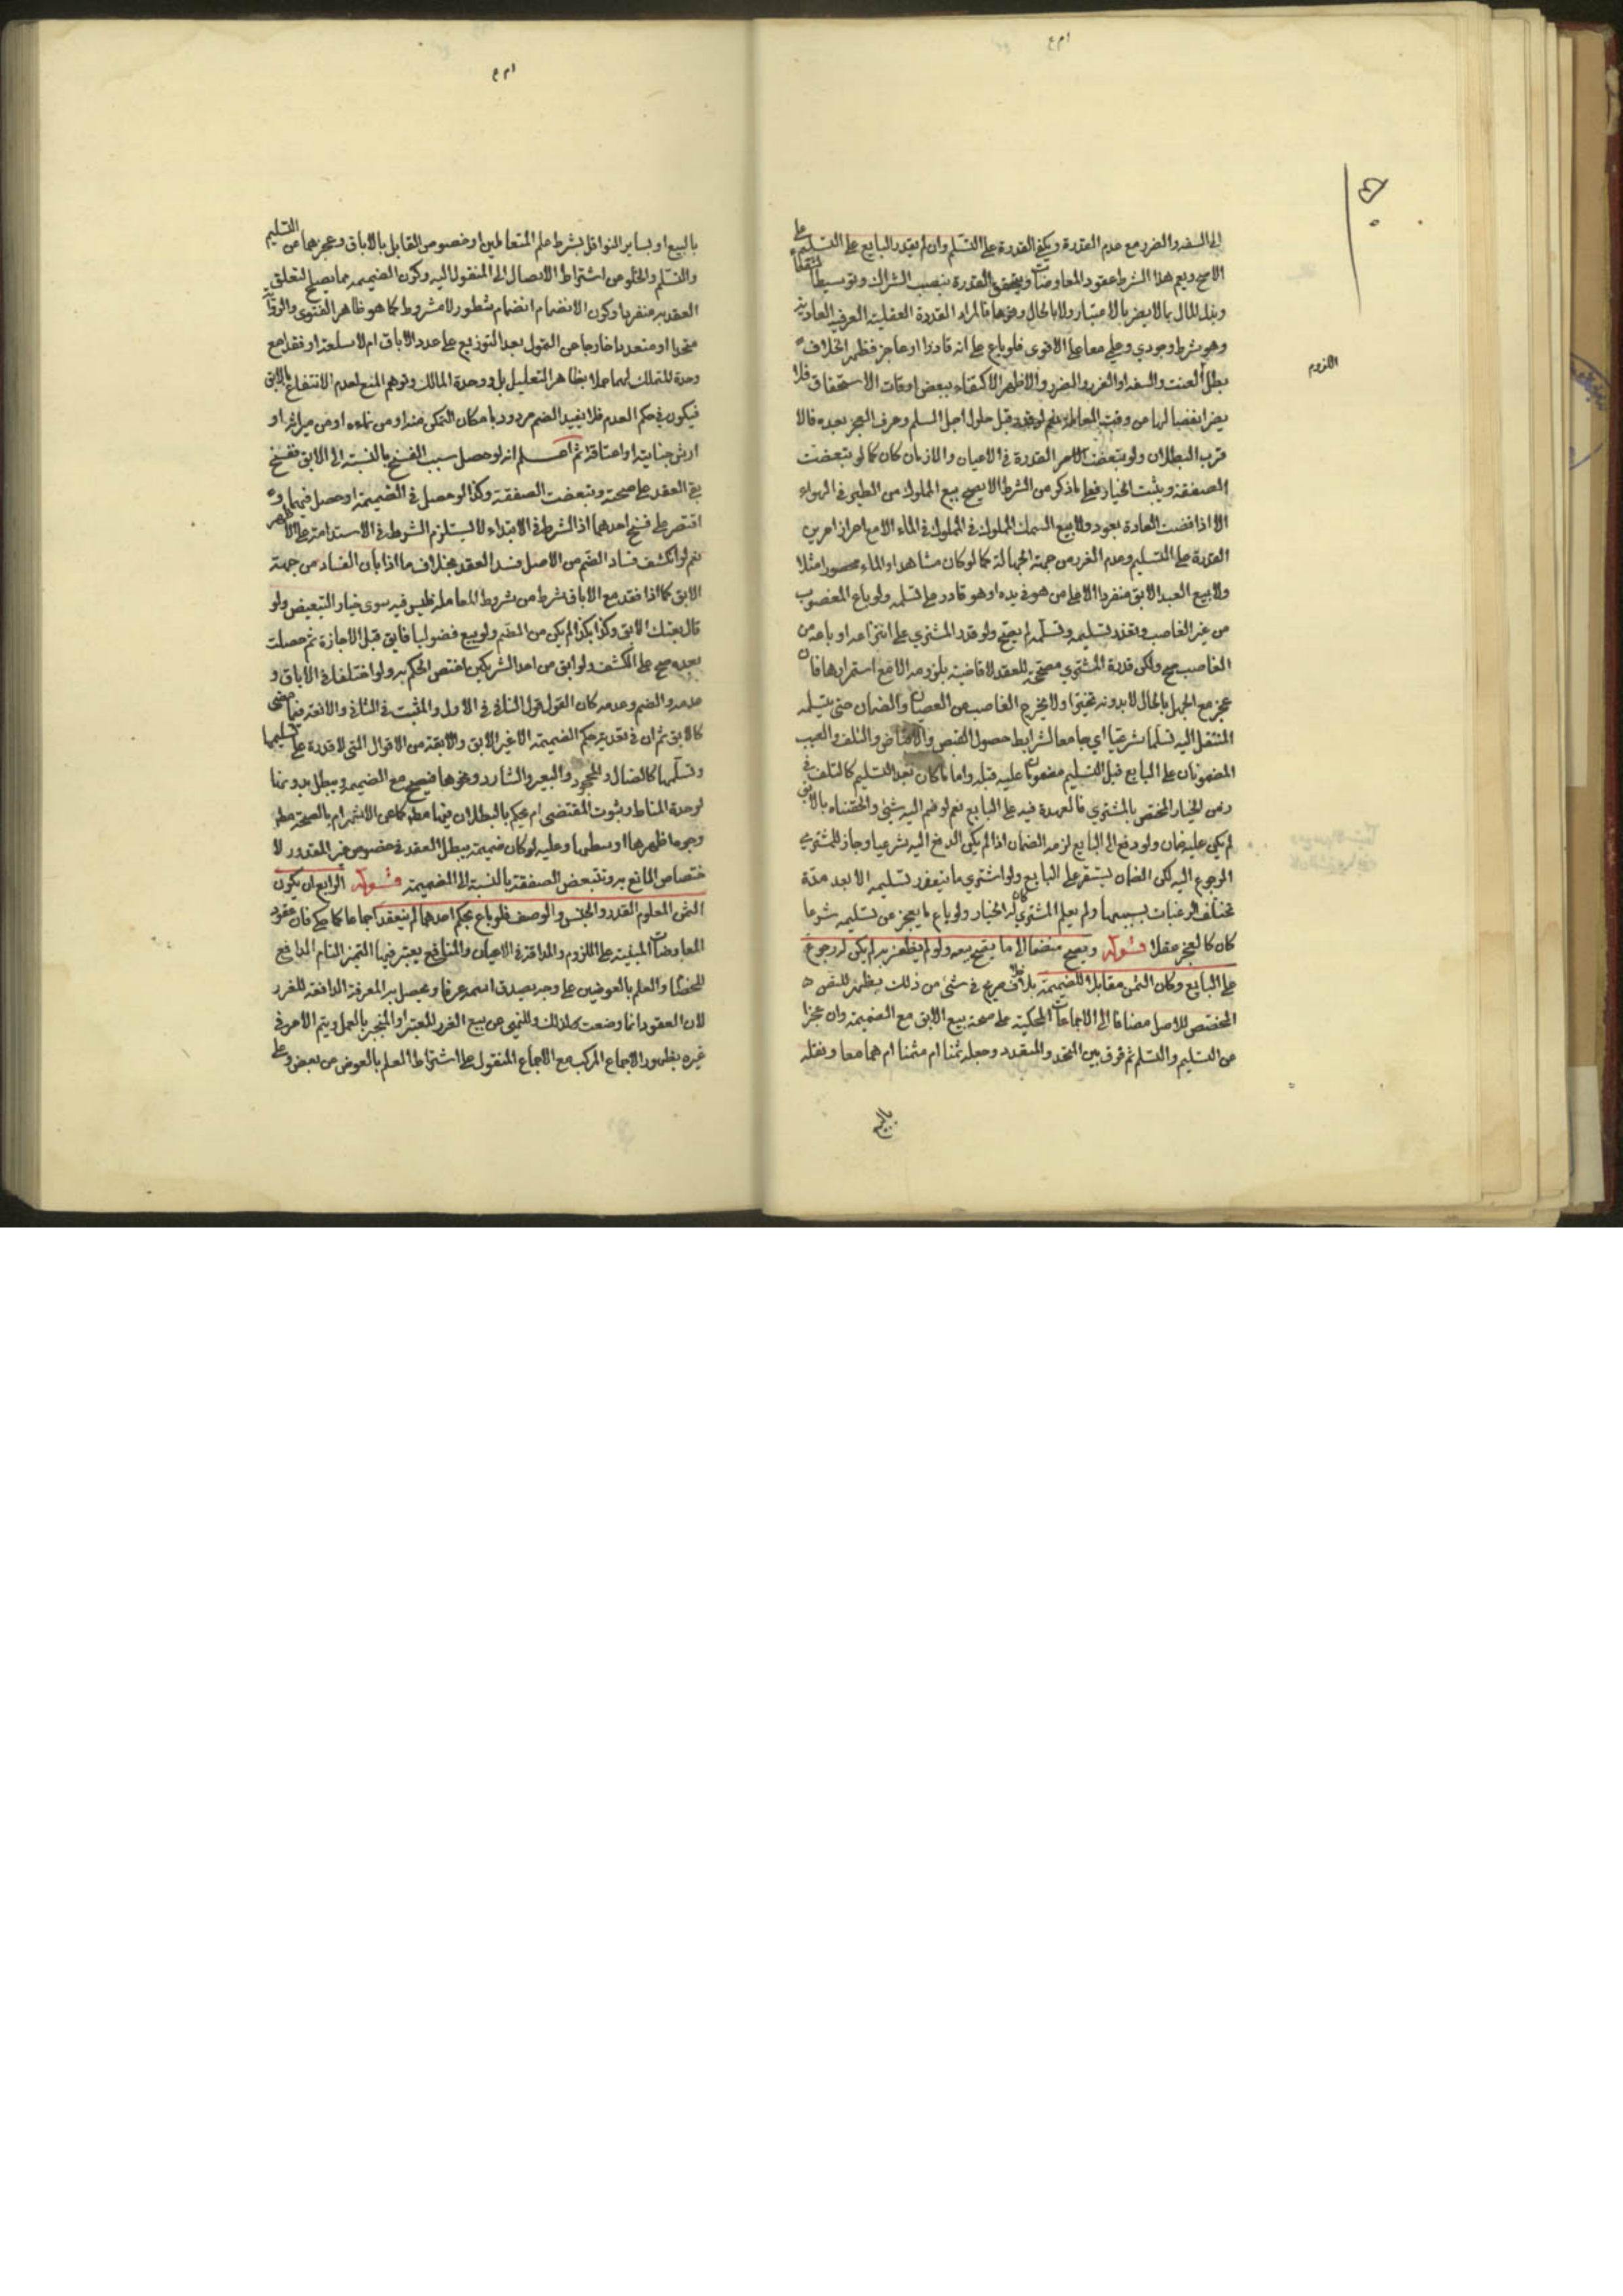 الى السفه والضرر مع عدم القدرة ويكفى القدرة على التسلم وان لم يقدر البايع على التسليم على
الاصح ويعم هذا الشرط عقود المعاوضات ويتحقق القدرة بنصب الشراك وتوسيط
وبذل المال بما لا يضر بالاعتبار ولا بالحال ونحوها فالمراد القدرة العقلية العرفية العادية
وهو شرط وجودي وعلمي معا على الاقوى فلو باع على انه قادر اذا عاجز فظهر الخلاف
بطل للعبث والسفه او الغرر والضرر والاظهر الاكتفاء ببعض اوقات الاستحقاق فلا
قرب البطلان ولو تبعضت القدرة في الاعيان والازمان كان كما لو تبعضت
الصفقة ويثبت الخيار فعلى ما ذكر من الشرط لا يصح بيع المملوك من الطير في الهواء
الا اذا قضت العادة بعوده ولا بيع السمك المملوك في المملوك في الماء الا مع احراز امرين
القدرة على التسليم وعدم الغرر من جهة الجهالة كما لو كان مشاهدا والماء محصورا مثلا
ولا بيع العبد الابق منفردا الا على من هو في يده او هو قادر على تسلمه ولو باع المغصوب
من غير الغاصب وتعذر تسليمه وتسلمه لم يصح ولو قدر المشتري على انتزاعه او باعه من
الغاصب صح ولكن قدرة المشتري مصححة للعقد لا قاضية بلزومه الا مع استمرارها فان
عجز مع الجهل بالحال لا بدونه تخير ولا يخرج الغاصب من العصيان والضمان حتى يتسلمه
المنتقل اليه تسلما شرعيا اي جامعا لشرايط حصول القبض والتلف والعيب
المضمونان على البايع قبل التسليم مضمونان عليه قبله واما ما كان بعد التسليم كالتلف في
زمن الخيار المختص بالمشتري فالعهدة فيه على البايع نعم لو ضم اليه شيئ
لم يكن عليه ضمان ولو دفع الى البايع لزمه الضمان اذا لم يكن الدفع اليه شرعيا وجاز للمشتري
الرجوع اليه لكن الضمان يستقر على البايع ولو اشترى ما يتعذر تسليمه الا بعد مدة
تختلف الرغبات بسببها ولم يعلم المشتري كان له الخيار ولو باع ما يعجز عن تسليمه شرعا
كان كالعجز عقلا قوله ويصح منضما الى ما يصح بيعه ولو لم يظفر به لم يكن له رجوع
على البايع وكان الثمن مقابلا للضميمة بلا خلاف صريح في شئ من ذلك يظهر للنص
المخصص للاصل مضافا الى الاجماعات المحكية على صحة بيع الابق مع الضميمة وان عجزا
عن التسليم والتسلم ثم لا فرق بين المتحد والمتعدد وجعله ثمنا ام مثمنا ام هما معا ونقله
بالبيع
اللزوم
بالبيع او بساير النواقل بشرط علم المتعاملين او خصوص القابل بالاباق وعجزهما عن التسليم
والتسلم والخلو من اشتراط الايصال الى المنقول اليه وكون الضميمة مما يصح لتعلق
العقد به منفردا وكون الانضمام انضمام شطور لا مشروط كما هو ظاهر الفتوى والرواية
متحدا او متعددا خارجا عن التمول بعد التوزيع على عدد الاباق ام لا
وحدة المالك لهما عملا بظاهر التعليل بل ووحدة المالك وتوهم المنع لعدم الانتفاع بالابق
فيكون في حكم العدم فلا يفيد الضم مردود بامكان التمكن منه او من نمائه او من ميراثه او
ارش جنايته او اعتاقه ثم اعلم انه لو حصل سبب الفسخ بالنسبة الى الابق ففسخ
بقى العقد على صحته وتبعضت الصفقة وكذا لو حصل في الضميمة او حصل فيهما و
اقتصر على فسخ احدهما اذ الشرط في الابتداء لا يستلزم الشرط في الاستدامة على الاظهر
نعم لو انكشف فساد الضم من الاصل فسد العقد بخلاف ما اذا بان الفساد من جهة
الابق كما اذا فقد مع الاباق شرط من شروط المعاملة فليس فيه سوى خيار التبعيض ولو
قال بعتك الابق وكذا بكذا لم يكن من الضم ولو بيع فضوليا فابق قبل الاجازة ثم حصلت
بعده صح على الكشف ولو ابق من احد الشريكين اختص الحكم به ولو اختلفا في الاباق و
عدمه والضم وعدمه كان القول قول النافي في الاول والمثبت في الثاني
كالابق ثم ان في تعدية حكم الضميمة الى غير الابق والابقة من الاقوال التي لا قدرة على تسليمها
وتسلمها كالضال والمجحود والبعير الشارد ونحوها فيصح مع الضميمة ويبطل بدونها
لوحدة المناط وثبوت المقتضى ام يحكم بالبطلان فيها مط كما هي ام بالصحة مط
وجوها اظهرها اوسطها وعليه لو كان ضميمة يبطل العقد في خصوص غير المقدور لا
ختصاص المانع به وتتبعض الصفقة بالنسبة الى الضميمة قوله الرابع ان يكون
الثمن المعلوم القدر والجنس والوصف فلو باع بحكم احدهما لم ينعقد اجماعا كما حكي فان عقود
المعاوضات المبنية على اللزوم والمداقة في الاعيان والمنافع يعتبر فيها التميز التام الدافع
للخطا والعلم بالعوضين على وجه يصدق اسمه عرفا ويحصل به المعرفة الدافعة للغرر
لان العقود انما وضعت كذلك وللنهي عن بيع الغرر المعتبر او المنجبر بالعمل ويتم الامر في
غيره بظهور الاجماع المركب مع الاجماع المنقول على اشتراط العلم بالعوض من بعض وعلى